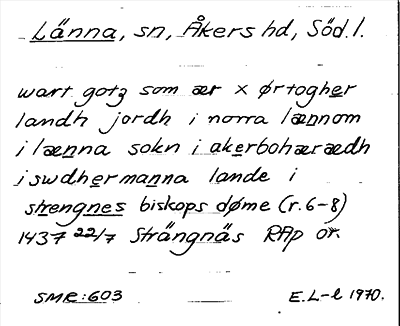 Länna, sn, Åkers hd, Söd. l.
wart gotz som ær x ørtogher
landh jordh i norra lænnom
i lænna sokn i akerbohæræedh
i swdhermanna lande i
strengnes biskops døme (r. 6-8)
1437 22/7 Strängnäs RAp or.
SMR: 603 E. L-l 1970.